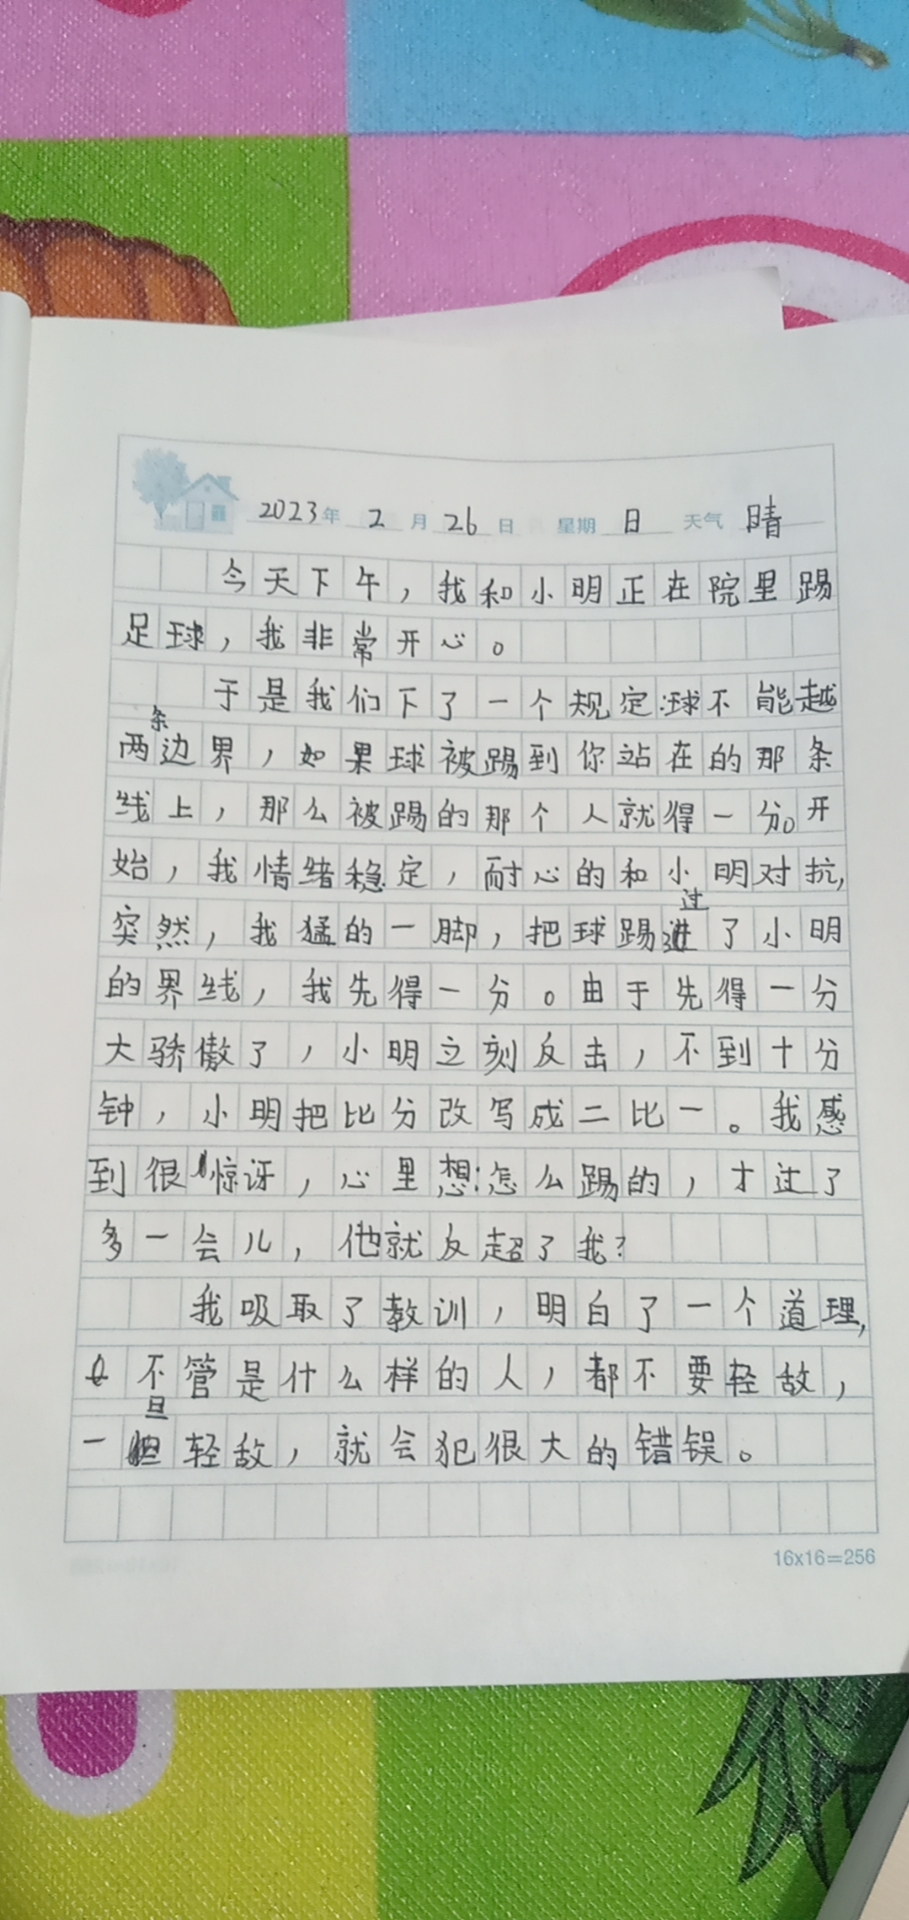 2023年 2 月 26 日 星期 日 天气 晴
今天下午，我和小明正在院里踢
足球，我非常开心。
于是我们下了一个规定：球不能越
两条边界，如果球被踢到你站在的那条
线上，那么被踢的那个人就得一分。开
始，我情绪稳定，耐心的和小明对抗，
突然，我猛的一脚，把球踢过了小明
的界线，我先得一分。由于先得一分
大骄傲了，小明立刻反击，不到十分
钟，小明把比分改写成二比一。我感
到很惊讶，心里想：怎么踢的，才过了
多一会儿，他就反超了我？
我吸取了教训，明白了一个道理，
不管是什么样的人，都不要轻敌，
一旦轻敌，就会犯很大的错误。
16x16=256